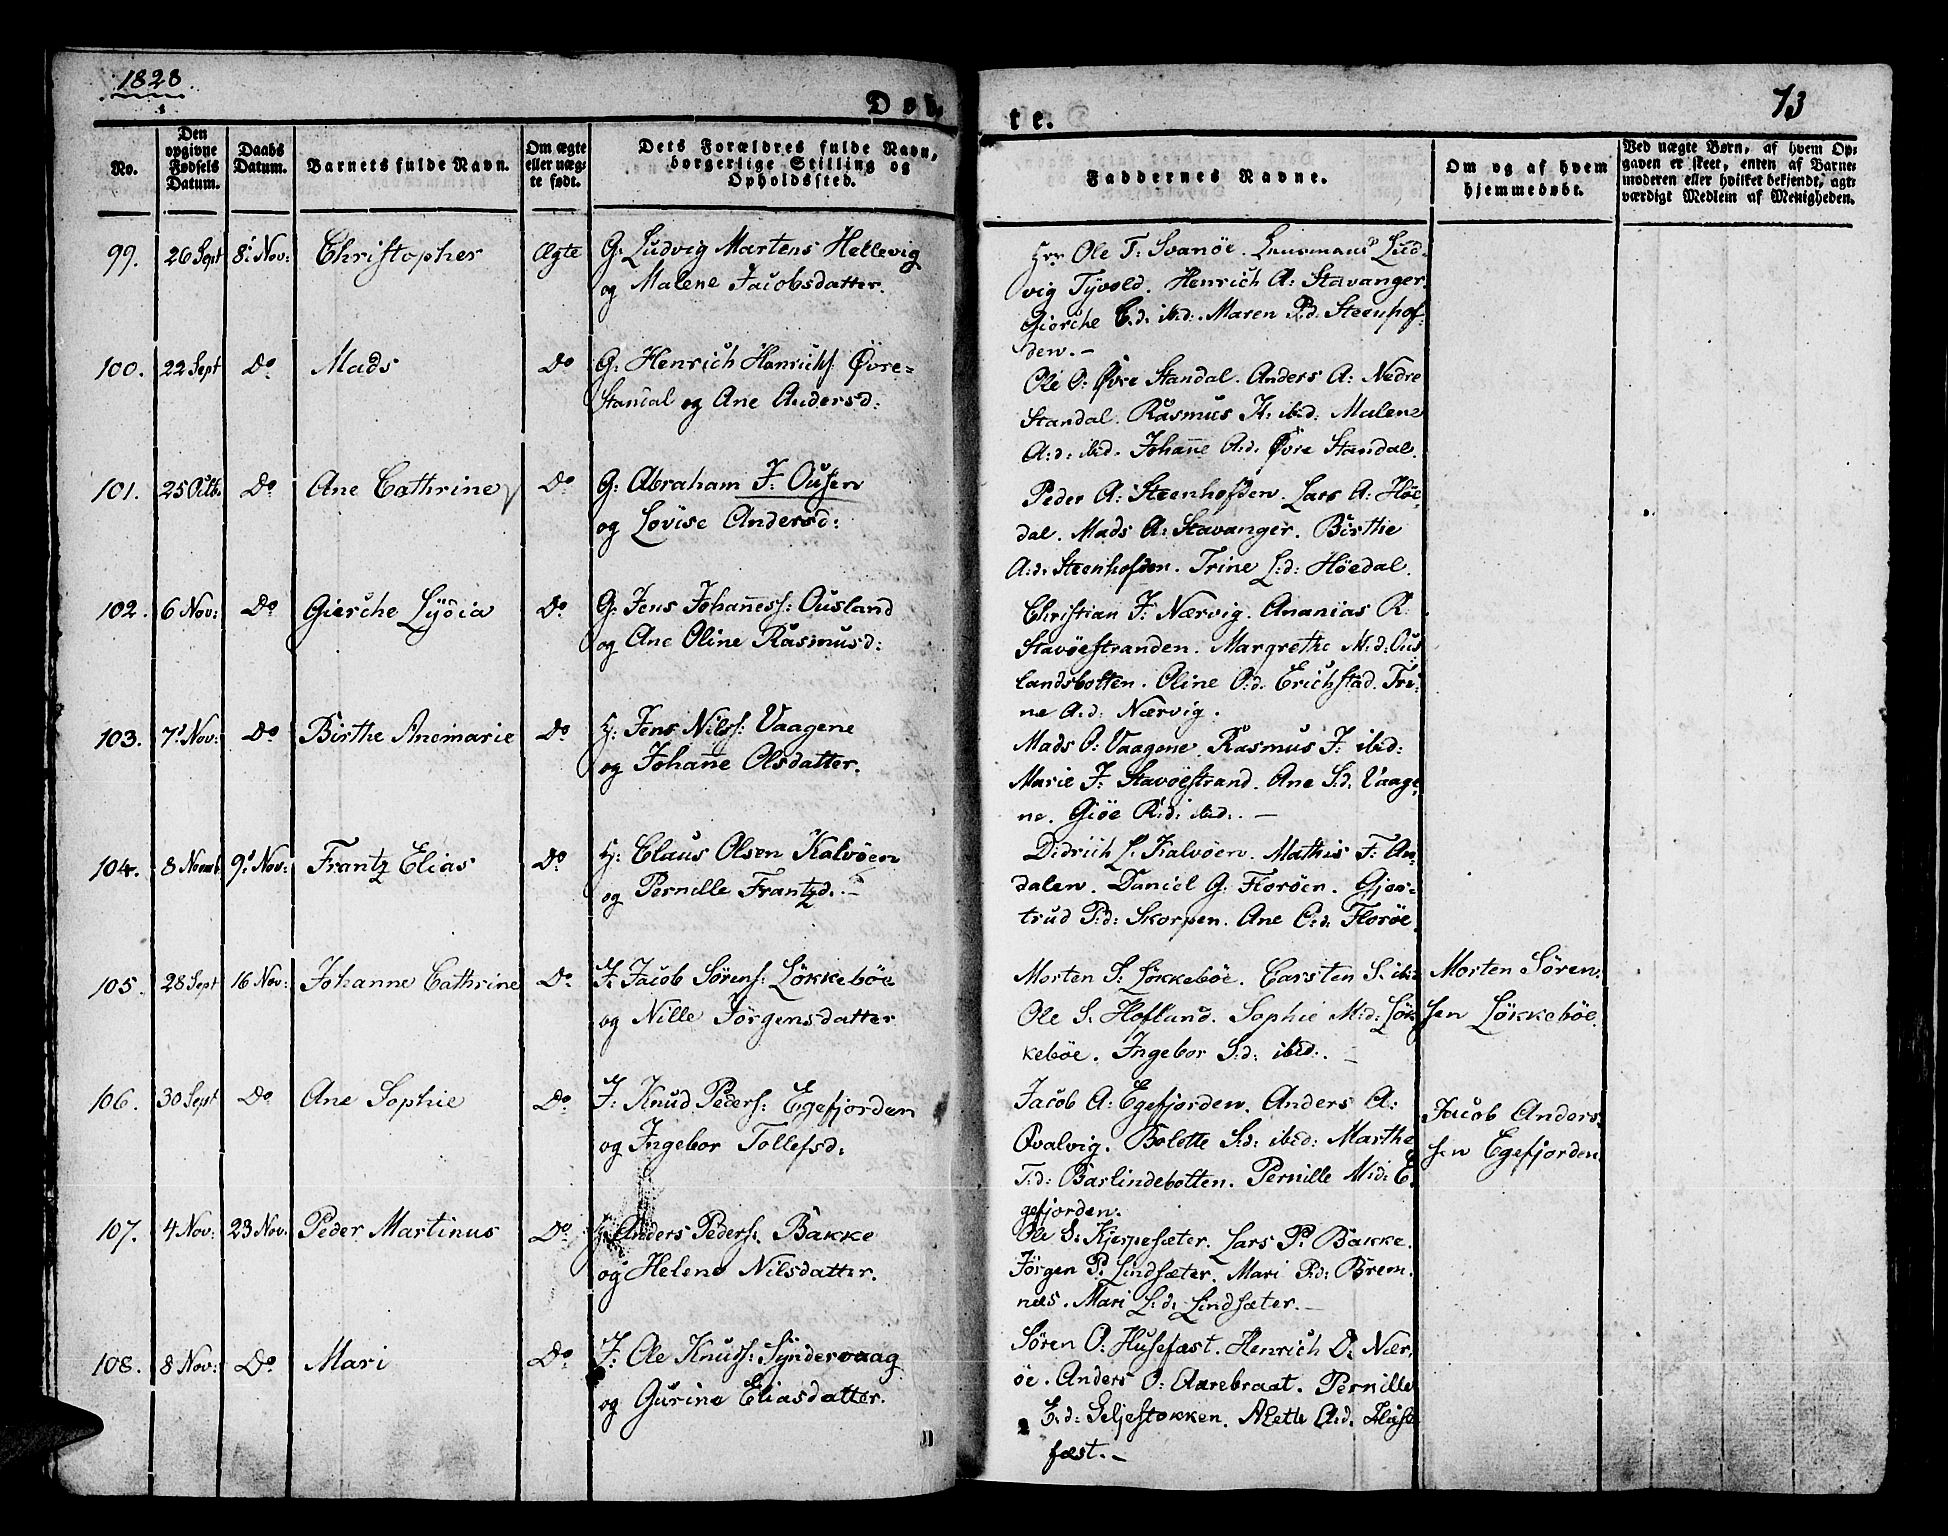 1828.
Døb-
te.
73
No.
Den opgivne Fødsels Datum.
Daabs Datum.
Barnets fulde Navn.
Om ægte eller uægte født.
Dets Forældres fulde Navn, borgerlige Stilling og Opholdssted.
Faddernes Navne.
Om og af hvem hjemmedøbt.
Ved uægte Børn, af hvem Opgaven er skeet, enten af Barnemoderen eller hvilket bekjendt, agtværdigt Medlem af Menigheden.
99. 26 Sept 8: Nov: Christopher Ægte G: Ludvig Martens Hellevig
og Malene Jacobsdatter.
Hrr Ole T: Svanöe. Lensmand Lud-
vig Tyvold. Henrich A: Stavanger.
Giørche E:d: ibid: Maren P:d: Steenhof-
den.-
100. 22 Sept Do Mads Do G: Henrich Henrichs: Øvre-
Standal og Ane Andersd:
Ole O: Øvre Standal. Anders A: Nedre
Standal. Rasmus H: ibid: Malene
A:d: ibid. Johane A:d. Øvre Standal.
101. 25 Octb. Do Ane Cathrine Do G: Abraham J: Ousen
og Lovise Andersd:
Peder A: Steenhofden. Lars A: Höe-
dal. Mads A: Stavanger. Birthe
A:d. Steenhofden. Trine L:d: Höedal.
102. 6 Nov: Do Gierche Lydia Do G: Jens Johaness: Ousland
og Ane Oline Rasmusd:
Christian J: Nærvig. Ananias R:
Stavöestranden. Margrethe M:d: Ous-
landsbotten. Oline O:d. Erichstad. Tri-
ne A:d: Nærvig.
103. 7: Nov: Do Birthe Anemarie Do H: Jens Nilss: Vaagene
og Johane Olsdatter.
Mads O: Vaagene. Rasmus J: ibid:
Marie J: Stavöestrand. Ane S:d. Vaage-
ne. Giöe R:d: ibid:. -
104. 8 Novmb 9: Nov: Frantz Elias Do H: Claus Olsen Kalvöen
og Pernille Frantzd. -
Didrich L: Kalvöen. Mathis F: An-
dalen. Daniel G: Floröen. Gjer-
trud P:d: Skorpen. Ane C:d: Floröe.
105. 28 Sept 16 Nov: Johanne Cathrine Do. J: Jacob Sörens: Lökkeböe
og Nille Jörgensdatter
Morten S: Lökkeböe. Carsten S. ibid
Ole S. Hofland. Sophie M:d: Lök-
keböe. Ingebor S:d: ibid:. -
Morten Sören-
sen Lökkeböe.
106. 30 Sept Do Ane Sophie Do. J: Knud Peders: Egefjorden
og Ingebor Tollefsd.
Jacob A: Egefjorden. Anders A:
Qvalvig. Bolette S:d: ibid: Marthe
T:d: Barlindebotten. Pernille M:d: E-
gefjorden.
Jacob Anders-
sen Egefjorden.
107. 4 Nov: 23 Nov. Peder Martinus Do. H: Anders Peders: Bakke
og Helene Nilsdatter.
Ole S: Kjerpesæter. Lars P: Bakke.
Jörgen P. Lindsæter. Mari P:d: Brem-
næs. Mari L:d: Lindsæter. -
108. 8 Nov: Do. Mari Do. J: Ole Knuts: Syndervaag
og Gurine Eliasdatter.
Sören O: Husefæst. Henrich O: Nær-
öe. Anders O: Aarebraat. Pernille
E:d: Seljestokken. Alette A:d. Huse-
fæst. -